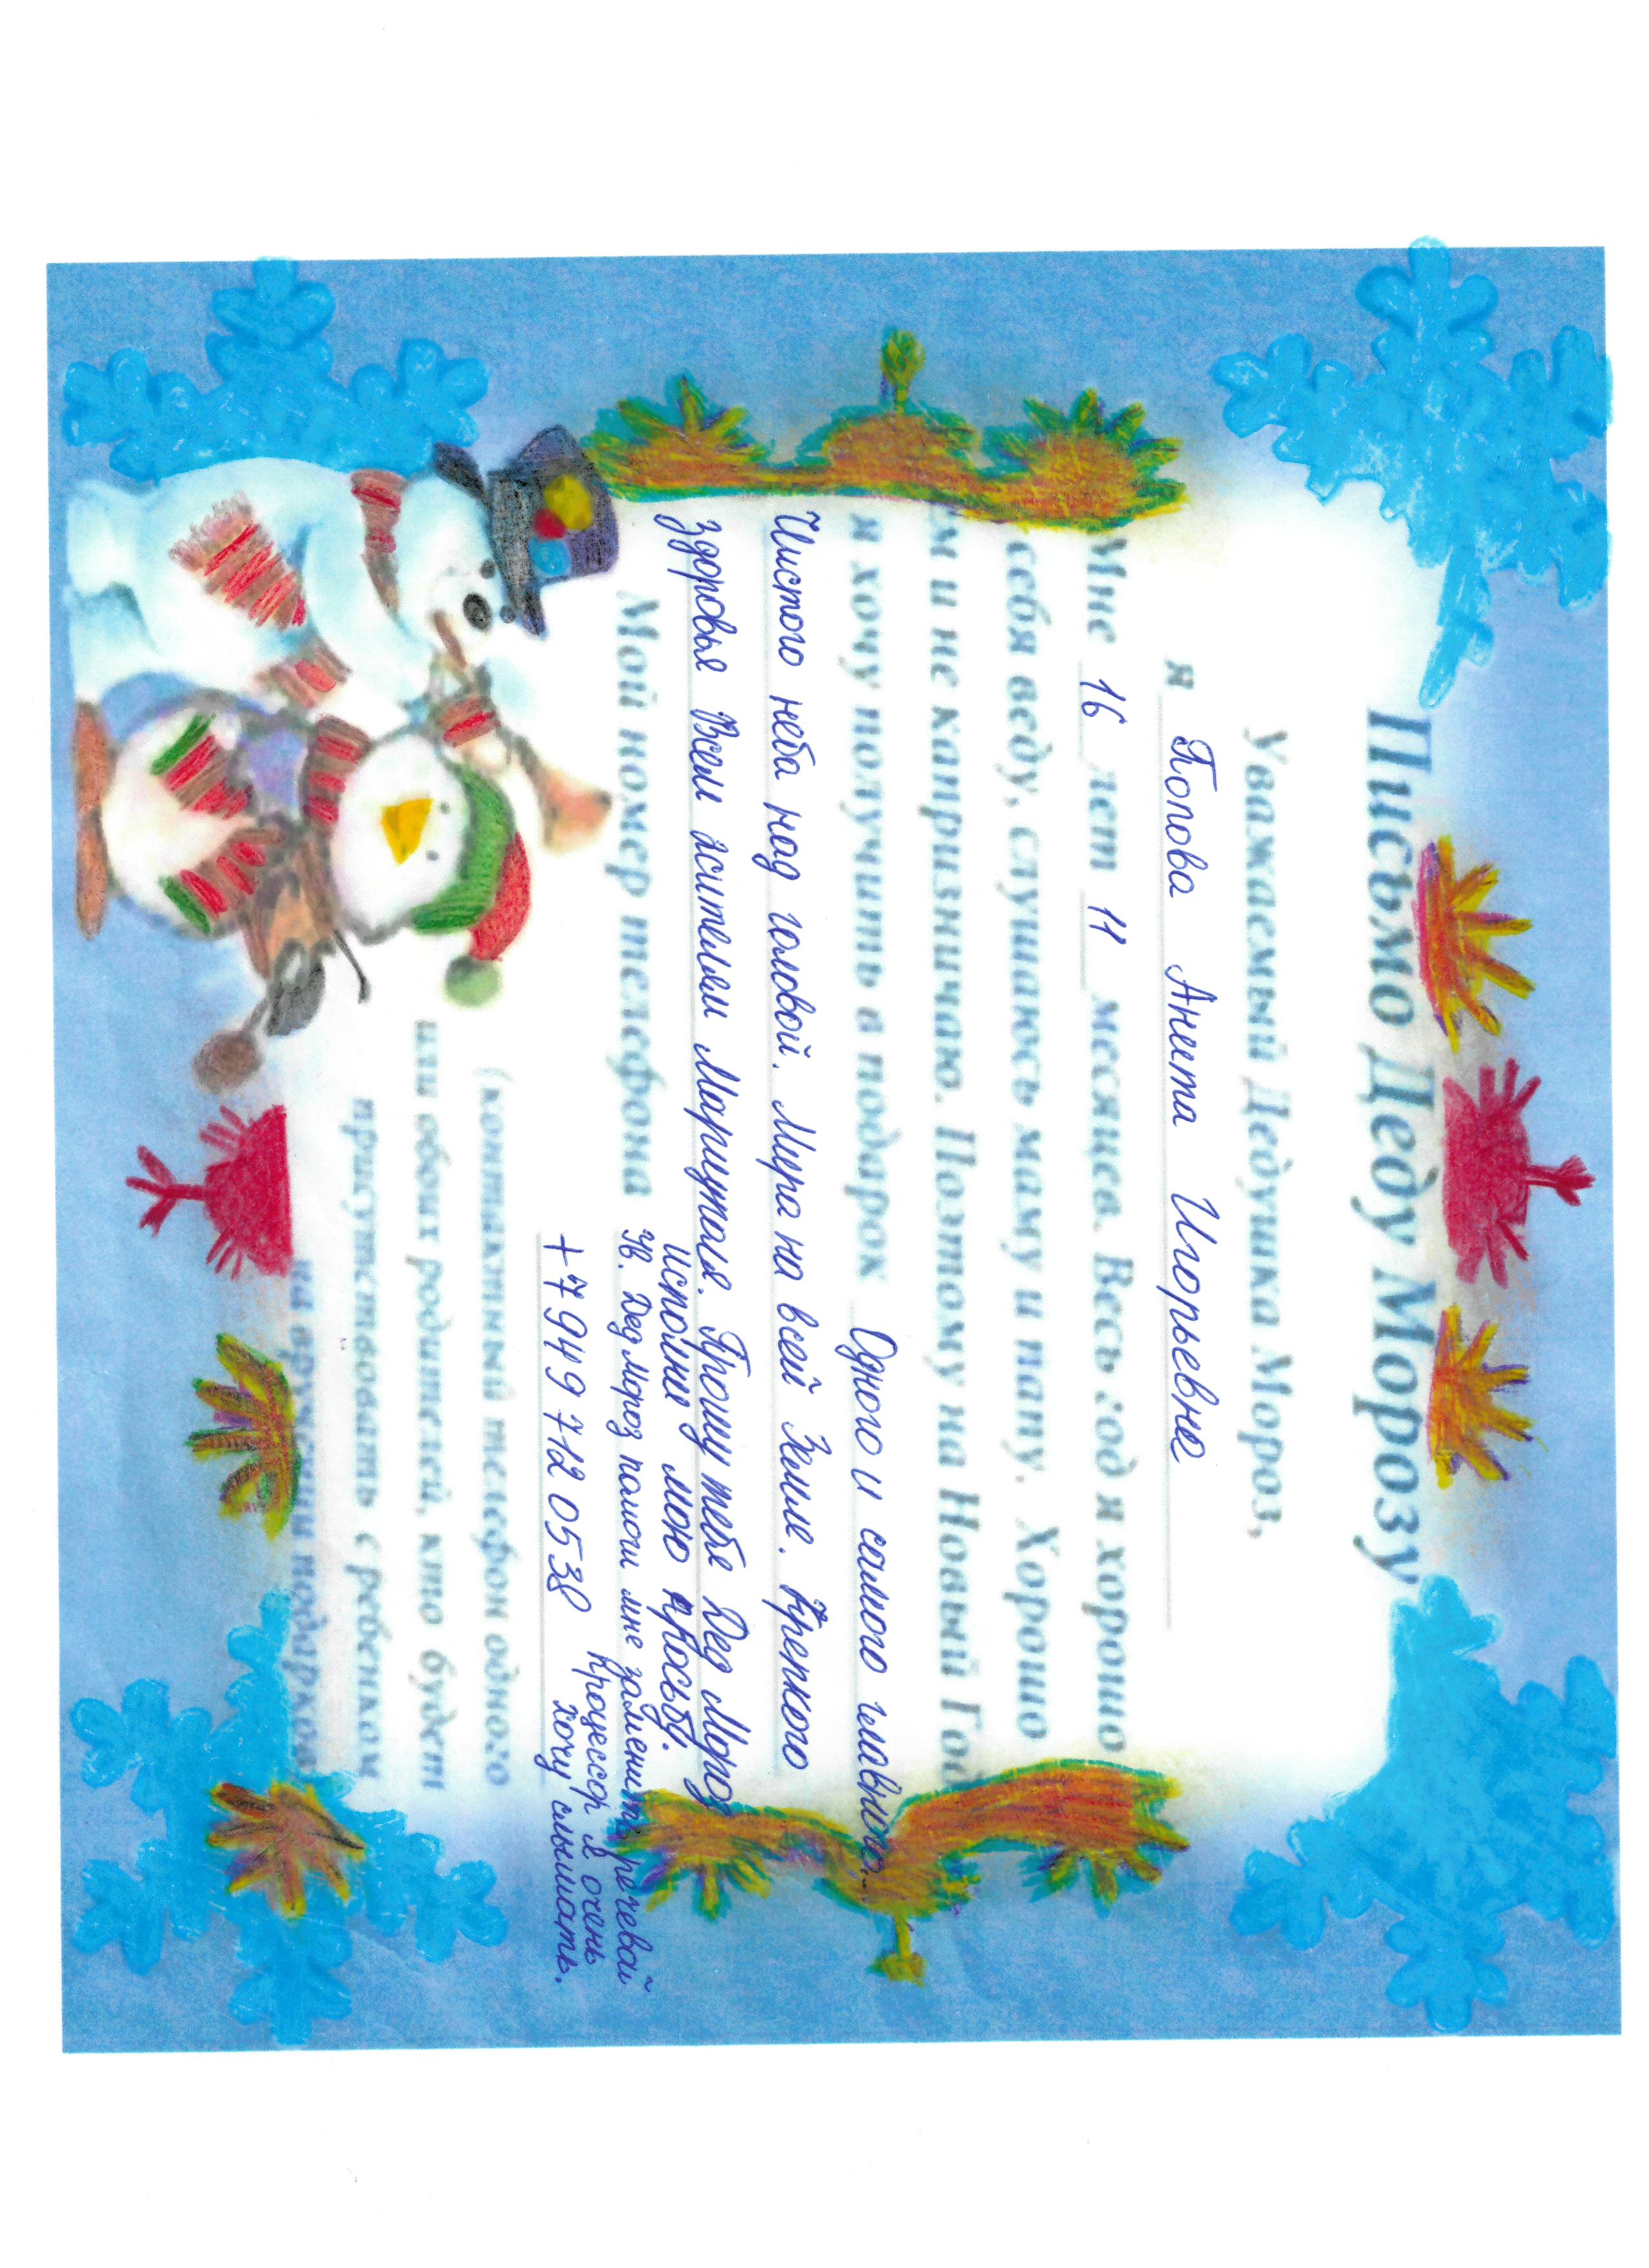 Письмо Деду Морозу
Уважаемый Дедушка Мороз,
я Попова Анита Игорьевне
Мне 16 лет 11 месяцев. Весь год я хорошо
себя веду, слушаюсь маму и папу. Хорошо
м и не капризничаю. Поэтому на Новый Год
я хочу получить в подарок Одного и самого главного...
Чистого неба над головой. Мира на всей Земле. Крепкого
здоровья Всем жителям Мариуполя. Прошу тебе Дед Мороз
Исполни мою просьбу.
Мой номер телефона Ув. Дед мороз помоги мне заменить речевой
процессор я очень
хочу слышать.
+7 949 712 05 38
(контактный телефон одного
или обоих родителей, кто будет
присутствовать с ребенком
на вручении подарков